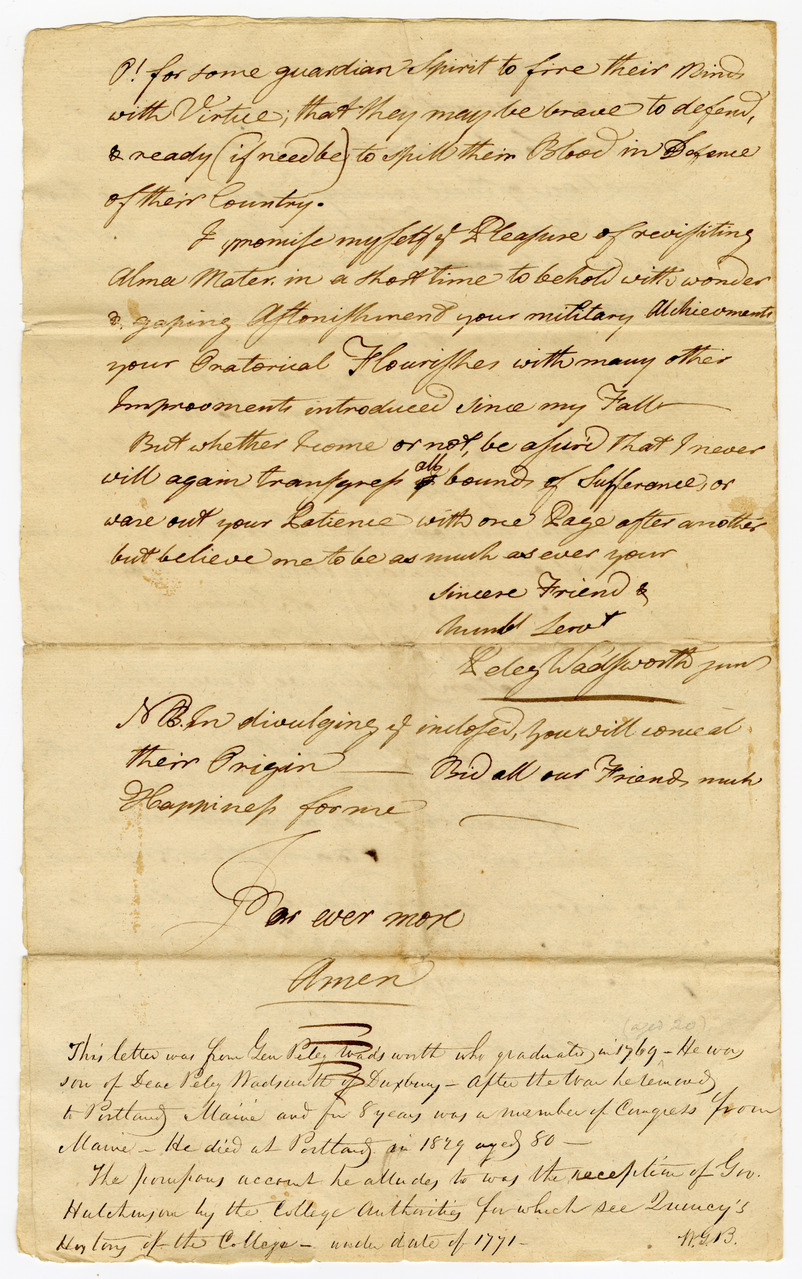 O! for some guardian Spirit to fire their Minds
with Virtue; that they may be brave to defend,
& ready (if need be) to spill their Blood in Defence
of their Country.
I promise myself ye Pleasure of revisiting
Alma Mater. in a short time to behold with wonder
& gaping Astonishment your military Atchievments
your Oratorical Flourishes with many other
Improvments introduced since my Fall —
But whether I come or not, be asurd that I never
will again transgress all bounds of Sufferance, or
ware out your Patience with one Page after another
but believe me to be as much as ever your
sincere Friend &
humbl Servt
Peleg Wadsworth junr
NB. In divulging ye inclosed, you will conceal
their Origin — Bid all our Friends much
Happiness for me —
For ever more
Amen
(aged 20)
This letter was from Gen Peleg Wadsworth who graduated in 1769 - He was
son of Deac Peleg Wadsworth of Duxbury - After the War he removed
to Portland Maine and for 8 years was a member of Congress from
Maine - He died at Portland in 1829 aged 80 —
The pompous account he alludes to was the reception of Gov.
Hutchinson by the College Authorities for which see Quincy's
History of the College - under date of 1771 -
W.G.B.